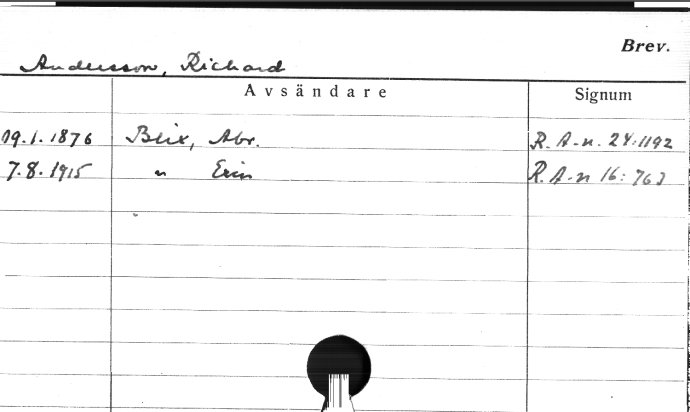 Brev.
Andersson, Richard
Avsändare Signum
19.1.1876 Blix, Abr. R. A-n. 24:1192
7.8.1915 " Erin R. A-n 16:763